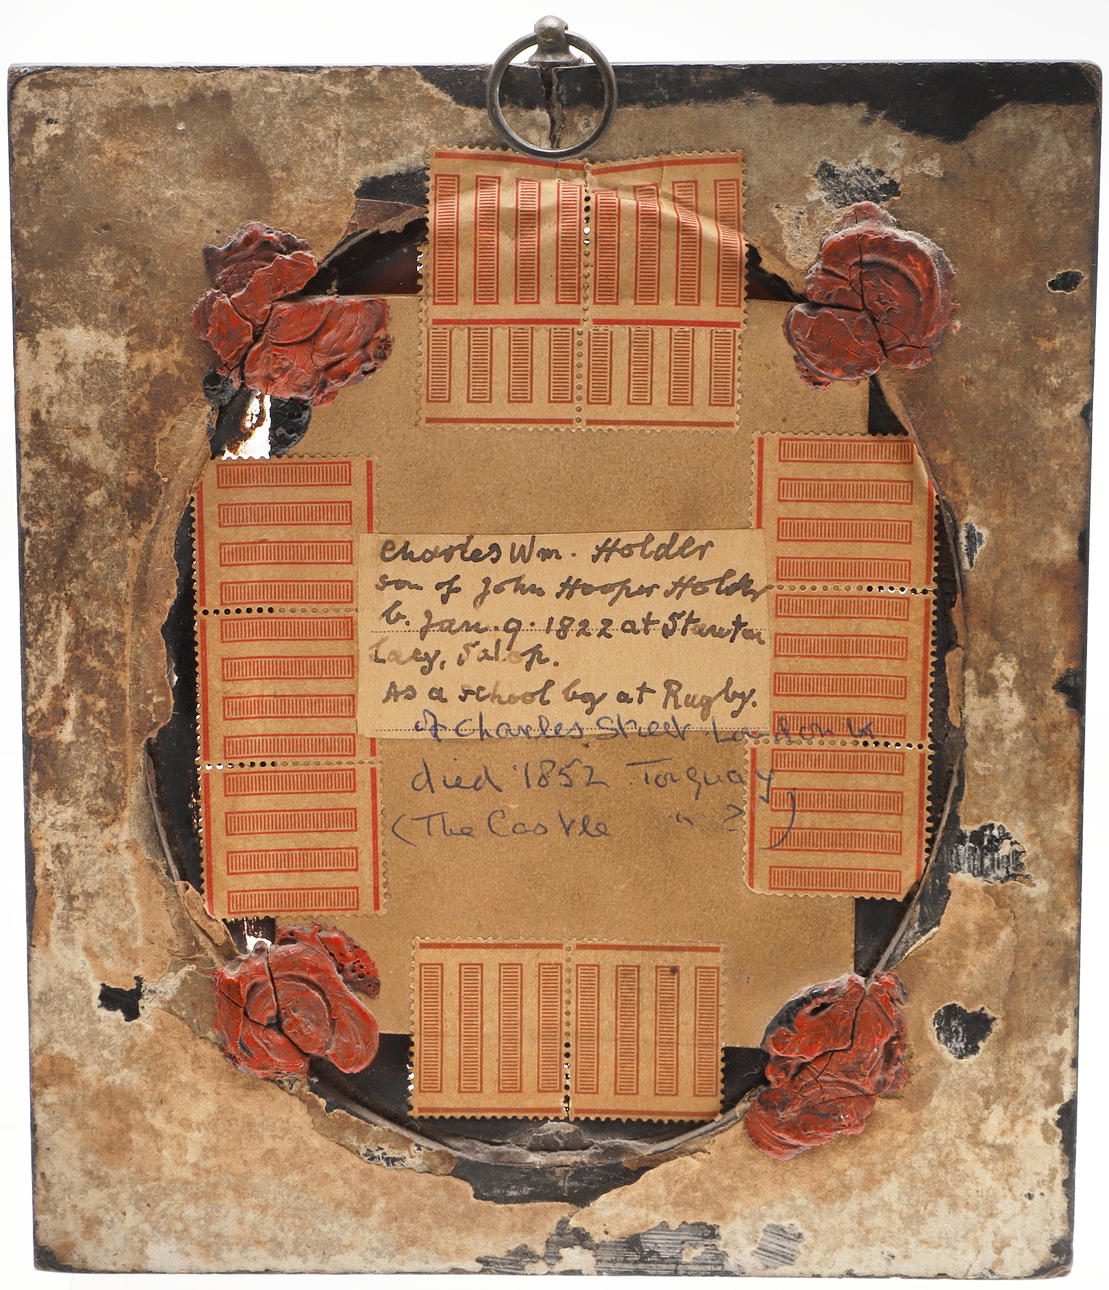 Charles Wm. Holder
son of John Hooper Holder
b. Jan. 9. 1822 at Stanton
Lacy, Salop.
As a school boy at Rugby.
of Charles Street London W
died 1852 Torquay
(The Castle " ?)